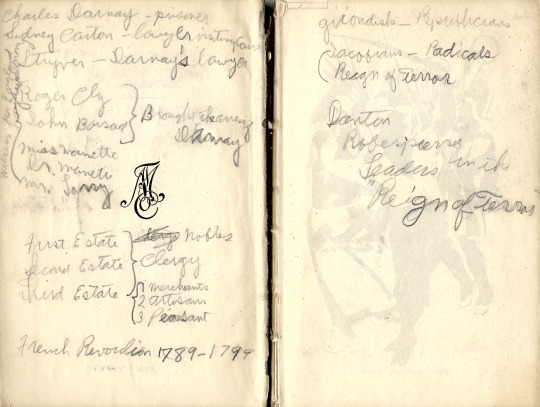 Charles Darnay - prisoner
Sydney Carton - lawyer
Stryver - Darnay's lawyer
Roger Cly
John Barsad
Brought charges
Darnay
Miss Manette
Dr. Manette
Mr. Lorry
First Estate
Nobles
Second Estate
Clergy
Third Estate
1 merchants
2 artisans
3 Peasant
French Revolution 1789-1799
girondists - Republicians
Jacobians - Radicals
Reign of terror
Danton
Robespierre
Leaders in the
"Reign of Terror"